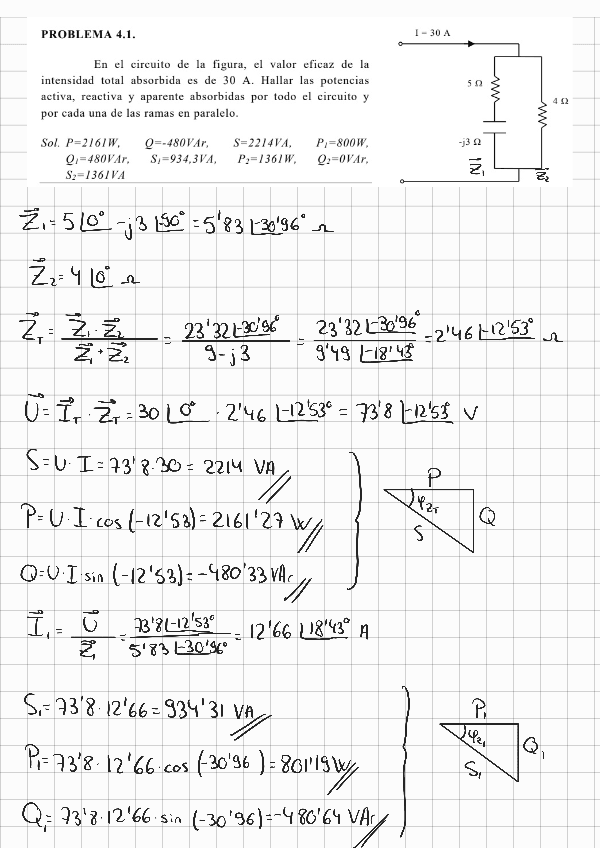 PROBLEMA 4.1.
I = 30 A
En el circuito de la figura, el valor eficaz de la
intensidad total absorbida es de 30 A. Hallar las potencias
activa, reactiva y aparente absorbidas por todo el circuito y
por cada una de las ramas en paralelo.
5 Ω
4 Ω
-j3 Ω
Z₁
Z₂
Sol. P=2161W, Q=-480VAr, S=2214VA, P₁=800W,
Q₁=480VAr, S₁=934,3VA, P₂=1361W, Q₂=0VAr,
S₂=1361VA
Z₁ = 5 ∠0° - j3 ∠-90° = 5'83 ∠-30'96° Ω
Z₂ = 4 ∠0° Ω
Z_T = Z₁ · Z₂ / Z₁ + Z₂ = 23'32 ∠-30'96° / 9 - j3 = 23'32 ∠-30'96° / 9'49 ∠-18'43° = 2'46 ∠-12'53° Ω
U = I_T · Z_T = 30 ∠0° · 2'46 ∠-12'53° = 73'8 ∠-12'53° V
S = U · I = 73'8 · 30 = 2214 VA
P = U · I · cos (-12'53) = 2161'27 W
Q = U · I · sin (-12'53) = -480'33 VAr
P
φ_ZT
Q
S
I₁ = U / Z₁ = 73'8 ∠-12'53° / 5'83 ∠-30'96° = 12'66 ∠18'43° A
S₁ = 73'8 · 12'66 = 934'31 VA
P₁ = 73'8 · 12'66 · cos (-30'96) = 801'19 W
Q₁ = 73'8 · 12'66 · sin (-30'96) = -480'64 VAr
P₁
φ_Z1
Q₁
S₁